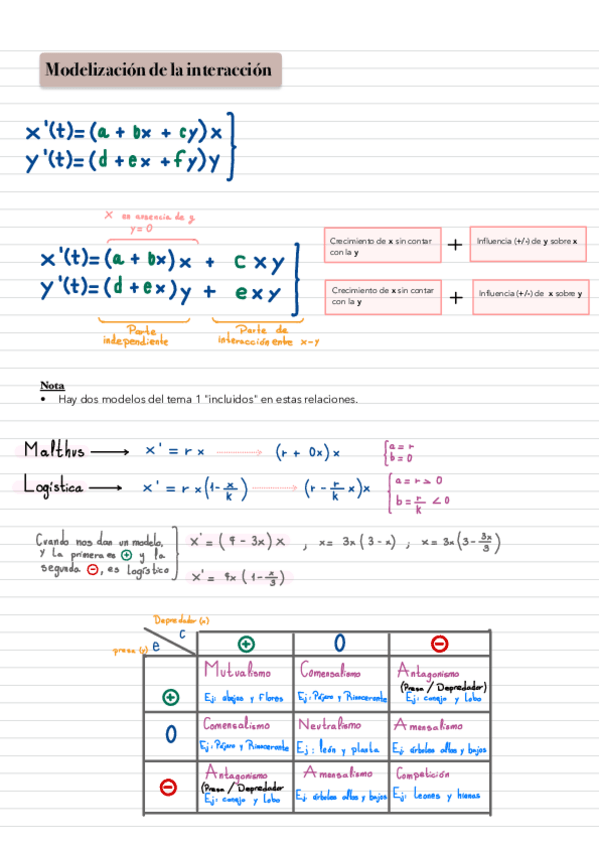 Modelización de la interacción
x'(t)=(a + bx + cy)x
y'(t)=(d+ex +fy)y
x en ausencia de y
y=0
x'(t)=(a + bx)x + cxy
y'(t)=(d+ex)y + exy
Crecimiento de x sin contar con la y
+
Influencia (+/-) de y sobre x
Crecimiento de x sin contar con la y
+
Influencia (+/-) de x sobre y
Parte independiente
Parte de interacción entre x-y
Nota
• Hay dos modelos del tema 1 "incluidos" en estas relaciones.
Malthus → x' = rx → (r + 0x)x { a=r b=0
Logística → x' = rx(1-x/k) → (r - r/k x)x { a=r>0 b=r/k <0
Cuando nos dan un modelo,
y la primera es ⊕ y la
segunda ⊖, es logístico
x'=(9-3x)x , x= 3x(3-x) ; x=3x(3-3x/3)
x'= 9x(1-x/3)
Depredador (x)
c
presa (y) e
⊕ 0 ⊖
⊕ Mutualismo Comensalismo Antagonismo
(Presa / Depredador)
Ej: abejas y flores Ej: Pájaro y Rinoceronte Ej: conejo y lobo
0 Comensalismo Neutralismo Amensalismo
Ej: Pájaro y Rinoceronte Ej: león y planta Ej: árboles altos y bajos
⊖ Antagonismo Amensalismo Competición
(Presa / Depredador
Ej: conejo y lobo Ej: árboles altos y bajos Ej: Leones y hienas